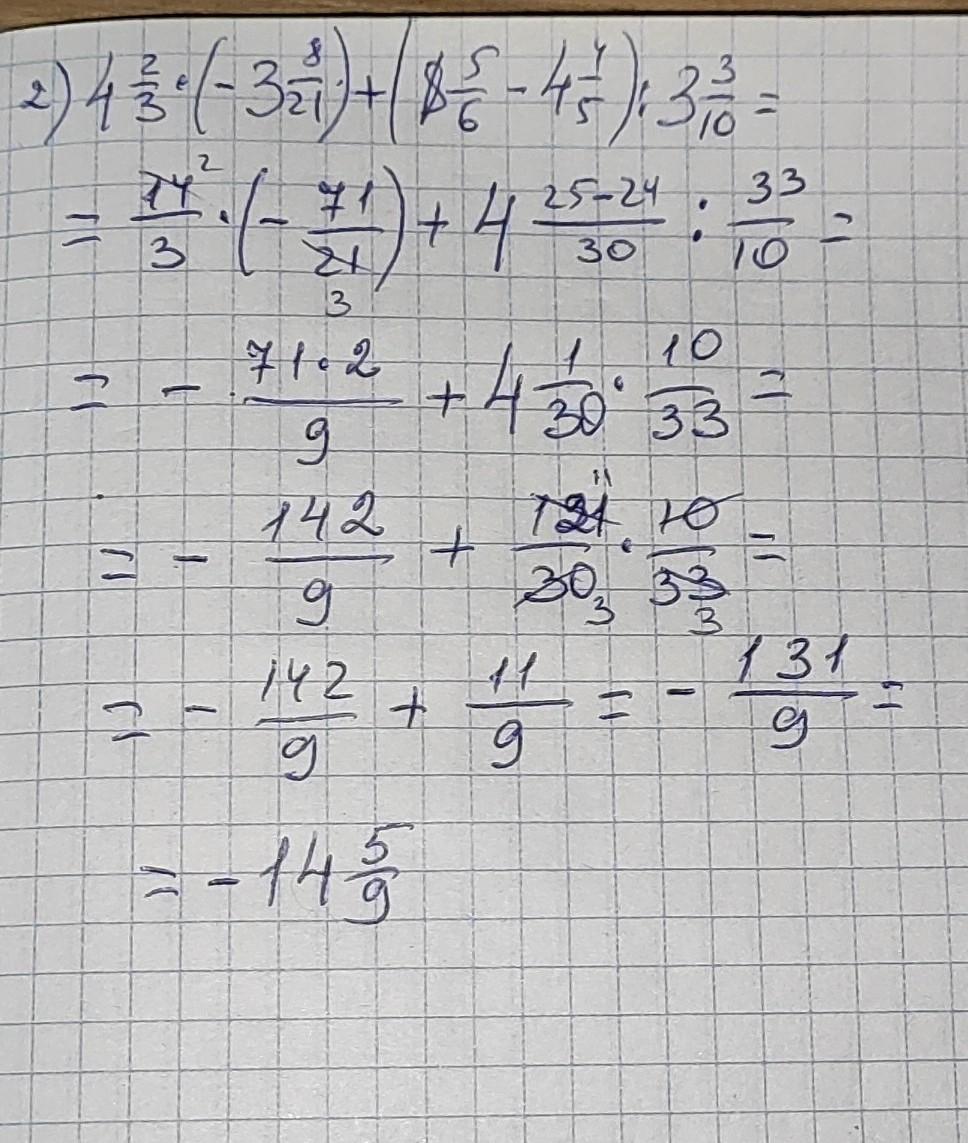 2) 4 2/3 · (- 3 8/21) + (8 5/6 - 4 4/5) : 3 3/10 =
= 14²/3 · (- 71/21 3) + 4 25-24/30 : 33/10 =
= - 71·2/9 + 4 1/30 · 10/33 =
= - 142/9 + 121 11/30 3 · 10/33 3 =
= - 142/9 + 11/9 = - 131/9 =
= - 14 5/9